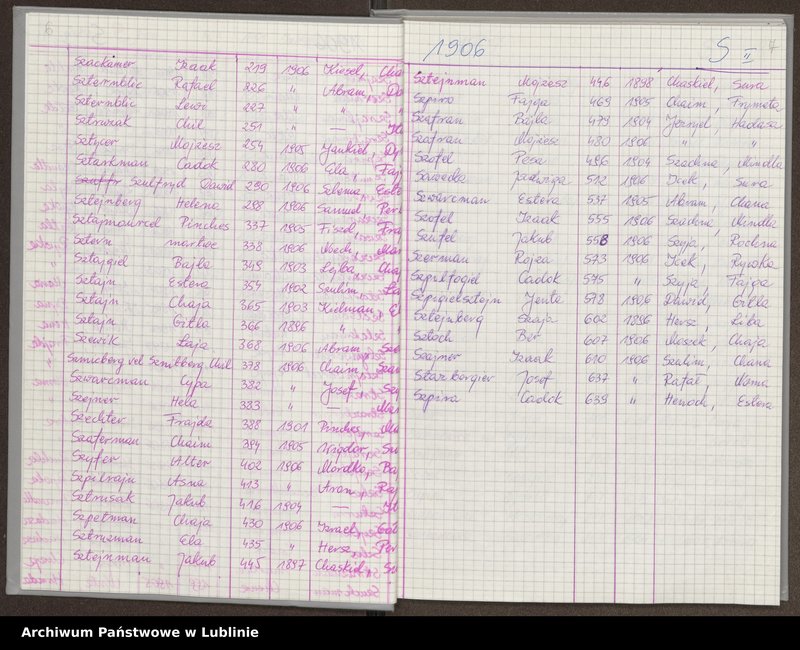 6
Szackamer Izaak 219 1906 Kiesel, Cha
Szternblic Rafael 226 " Abram, Do
Szternblic Lewi 227 " " "
Sztrwiak Chil 251 " —
Sztycer Mojzesz 254 1905 Jankiel, Dy
Sztarkman Cadok 280 1906 Ela, Faj
Szulfryd Dawid 290 1906 Szloma, Este
Sztejnberg Helena 298 1906 Samuel, Per
Sztajmourcel Pinches 337 1905 Fiszel, Fra
Sztern 338 1906 Noech, Mar
Sztajgiel Bajla 349 1903 Lejba, Chaj
Sztajn Estera 354 1902 Szulim,
Sztajn Chaja 365 1903 Kielman, E
Sztajn Gitla 366 1896 " "
Szewik Łaja 368 1906 Abram,
Szmicberg vel Szmitberg Chil 378 1906 Chaim,
Szwarcman Cypa 382 " Josef,
Szejner Hela 383 " —
Szechter Frajda 388 1901 Pinches,
Szaferman Chaim 394 1905 Wigdor,
Szyfer Alter 402 1906 Mordko, Ba
Szpilrajn Asna 413 " Aron,
Sztrusak Jakub 416 1904 —
Szpetman Chaja 430 1906 Izrael,
Sztruzman Ela 435 " Hersz, Per
Sztejnman Jakub 445 1897 Chaskiel, Su
1906 S II 7
Sztejnman Mojzesz 446 1898 Chaskiel, Sura
Szpiro Fajga 469 1905 Chaim, Frymeta
Szafran Bajla 479 1904 Josyel, Hadasa
Szafran Mojzesz 480 1906 " "
Szofel Pesa 496 1904 Szachna, Mindla
Sawecka Jadwiga 512 1906 Icek, Sura
Szwarcman Estera 537 1905 Abram, Chana
Szofel Izaak 555 1906 Szachna, Mindla
Szufel Jakub 558 1906 Szyja,
Szerman Rojza 573 1906 Icek, Rywka
Szpilfogiel Cadok 575 " Szyja, Fajga
Szpigielsztejn Jenta 578 1906 Dawid, Gitla
Sztejnberg Szaja 602 1896 Hersz, Liba
Sztoch Ber 607 1906 Moszek, Chaja
Szajner Izaak 610 1906 Szulim, Chana
Starborgier Josef 637 " Rafał,
Szpiro Cadok 639 " Henoch, Estera
Archiwum Państwowe w Lublinie